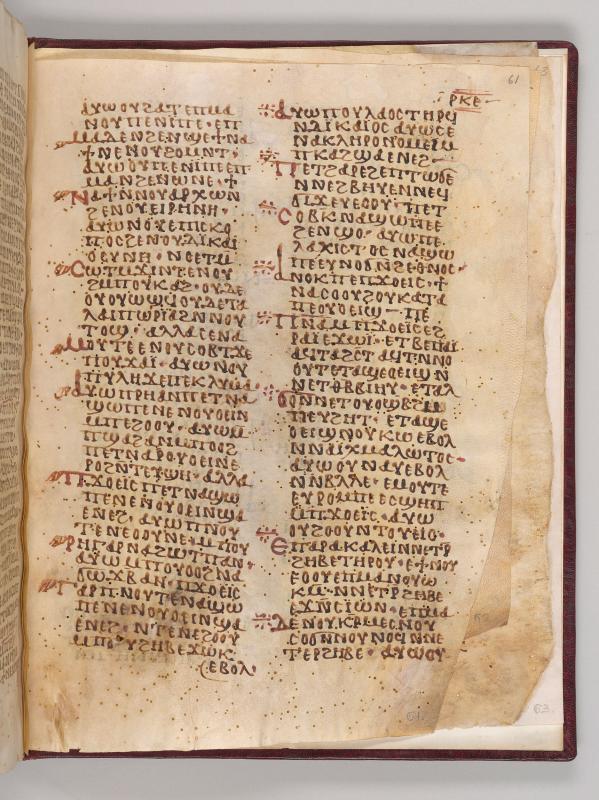 ⲣⲕⲉ
ⲁⲩⲱⲟⲩϩⲁⲧⲉⲡⲙⲁ
ⲛⲟⲩⲡⲉⲛⲓⲡⲉ· ⲉⲡ
ⲙⲁⲛϩⲉⲛϣⲉϯⲛⲁ
ϯⲛⲉⲛⲟⲩϩⲟⲙⲛⲧ·
ⲁⲩⲱⲟⲩⲡⲉⲛⲓⲡⲉⲉⲡ
ⲙⲁⲛϩⲉⲛⲱⲛⲉ· ϯ
ⲛⲁϯⲛⲛⲟⲩⲁⲣⲭⲱⲛ
ϩⲉⲛⲟⲩⲉⲓⲣⲏⲛⲏ·
ⲁⲩⲱⲛⲟⲩⲉⲡⲓⲥⲕⲟ
ⲡⲟⲥϩⲉⲛⲟⲩⲇⲓⲕⲁⲓ
ⲟⲥⲩⲛⲏ· ⲛⲥⲉⲧⲙ
ⲥⲱⲧⲙϫⲓⲛⲧⲉⲛⲟⲩ
ϩⲙⲡⲟⲩⲕⲁϩ· ⲟⲩⲇⲉ
ⲟⲩⲟⲩⲱϣϥⲟⲩⲇⲉⲧⲁ
ⲗⲁⲓⲡⲱⲣⲓⲁϩⲛⲛⲟⲩ
ⲧⲟϣ· ⲁⲗⲗⲁⲥⲉⲛⲁ
ⲙⲟⲩⲧⲉⲉⲛⲟⲩⲥⲟⲃⲧϫⲉ
ⲡⲓⲟⲩϫⲁⲓ· ⲁⲩⲱⲛⲟⲩ
ⲡⲩⲗⲏϫⲉⲡⲉⲕⲗⲩⲙⲁ
ⲁⲩⲱⲡⲣⲏⲁⲛⲡⲉⲧⲛⲁ
ϣⲱⲡⲉⲛⲉⲛⲟⲩⲟⲉⲓⲛ
ⲙⲡⲉϩⲟⲟⲩ· ⲁⲩⲱⲙ
ⲡⲟⲟϩⲁⲛⲙⲡⲟⲟϩ
ⲡⲉⲧⲛⲁⲣⲟⲩⲟⲉⲓⲛⲉ
ⲣⲟϩⲛⲧⲉⲩϣⲏ· ⲁⲗⲗⲁ
ⲡϫⲟⲉⲓⲥⲡⲉⲧⲛⲁϣⲱ
ⲡⲉⲛⲉⲛⲟⲩⲟⲉⲓⲛϣⲁ
ⲉⲛⲉϩ· ⲁⲩⲱⲡⲛⲟⲩ
ⲧⲉⲛⲉⲟⲟⲩⲛⲉ· ⲙⲡⲓⲟⲩ
ⲣⲏⲅⲁⲣⲛⲁϩⲱⲧⲡⲁⲛ·
ⲁⲩⲱⲙⲡⲟⲩⲟⲟϩⲛⲁ
ⲱϫⲛⲁⲛ· ⲡϫⲟⲉⲓⲥ
ⲅⲁⲣⲡⲛⲟⲩⲧⲉⲛⲁϣⲱ
ⲡⲉⲛⲉⲛⲟⲩⲟⲉⲓⲛϣⲁ
ⲉⲛⲉϩ· ⲛⲧⲉⲛⲉϩⲟⲟⲩ
ⲙⲡⲟⲩϩⲏⲃⲉϫⲱⲕ
ⲉⲃⲟⲗ·
ⲁⲩⲱⲡⲟⲩⲗⲁⲟⲥⲧⲏⲣϥ
ⲛⲇⲓⲕⲁⲓⲟⲥⲁⲩⲱⲥⲉ
ⲛⲁⲕⲗⲏⲣⲟⲛⲟⲙⲉⲓⲙ
ⲡⲕⲁϩϣⲁⲉⲛⲉϩ
ⲡⲉⲧϩⲁⲣⲉϩⲉⲡⲧⲱϭⲉ
ⲛⲛⲉϩⲃⲏⲩⲉⲛⲛⲉϥ
ϭⲓϫⲉⲩⲉⲟⲟⲩ· ⲡⲉⲧ
ⲥⲟⲃⲕⲛⲁϣⲱⲡⲉⲉ
ϩⲉⲛϣⲟ· ⲁⲩⲱⲡⲉ
ⲗⲁⲭⲓⲥⲧⲟⲥⲛⲁϣⲱ
ⲡⲉⲉⲩⲛⲟϭⲛϩⲉⲑⲛⲟⲥ·
ⲁⲛⲟⲕⲡⲉⲡϫⲟⲉⲓⲥ· ϯ
ⲛⲁⲥⲟⲟⲩϩⲟⲩⲕⲁⲧⲁ
ⲡⲉⲟⲩⲟⲉⲓϣ
ⲡⲉⲡⲛⲁⲙⲡϫⲟⲉⲓⲥⲉϩ
ⲣⲁⲓⲉϫⲱⲓ· ⲉⲧⲃⲉⲡⲁⲓ
ⲁϥⲧⲁϩⲥⲧⲁϥⲧⲛⲛⲟ
ⲟⲩⲧⲉⲧⲁϣⲉⲟⲉⲓϣⲛ
ⲛⲉⲧⲑⲃⲃⲓⲏⲩ· ⲉⲧⲁⲗ
ϭⲟⲛⲛⲉⲧⲟⲩⲟϣϥϩⲙ
ⲡⲉⲩϩⲏⲧ· ⲉⲧⲁϣⲉ
ⲟⲉⲓϣⲛⲟⲩⲕⲱⲉⲃⲟⲗ
ⲛⲛⲁⲓⲭⲙⲁⲗⲱⲧⲟⲥ·
ⲁⲩⲱⲟⲩⲛⲁⲩⲉⲃⲟⲗ
ⲛⲛⲃⲗⲗⲉ· ⲉⲙⲟⲩⲧⲉ
ⲉⲩⲣⲟⲙⲡⲉⲉⲥϣⲏⲡ
ⲙⲡϫⲟⲉⲓⲥ· ⲁⲩⲱ
ⲟⲩϩⲟⲟⲩⲛⲧⲟⲩⲉⲓⲟ·
ⲉⲡⲁⲣⲁⲕⲁⲗⲉⲓⲛⲛⲉⲧⲣ
ϩⲏⲃⲉⲧⲏⲣⲟⲩ· ⲉϯⲛⲟⲩ
ⲉⲟⲟⲩⲉⲡⲙⲁⲛⲟⲩⲱ
ⲕⲙ· ⲛⲛⲉⲧⲣϩⲏⲃⲉ
ⲉϫⲛⲥⲓⲱⲛ· ⲉⲡⲙⲁ
ⲛⲟⲩⲕⲣⲙⲉⲥⲛⲟⲩ
ⲥⲟϭⲛⲛⲟⲩⲛⲟϥⲛⲛⲉ
ⲧⲉⲣϩⲏⲃⲉ· ⲁⲩⲱⲟⲩ
61
61.
63.